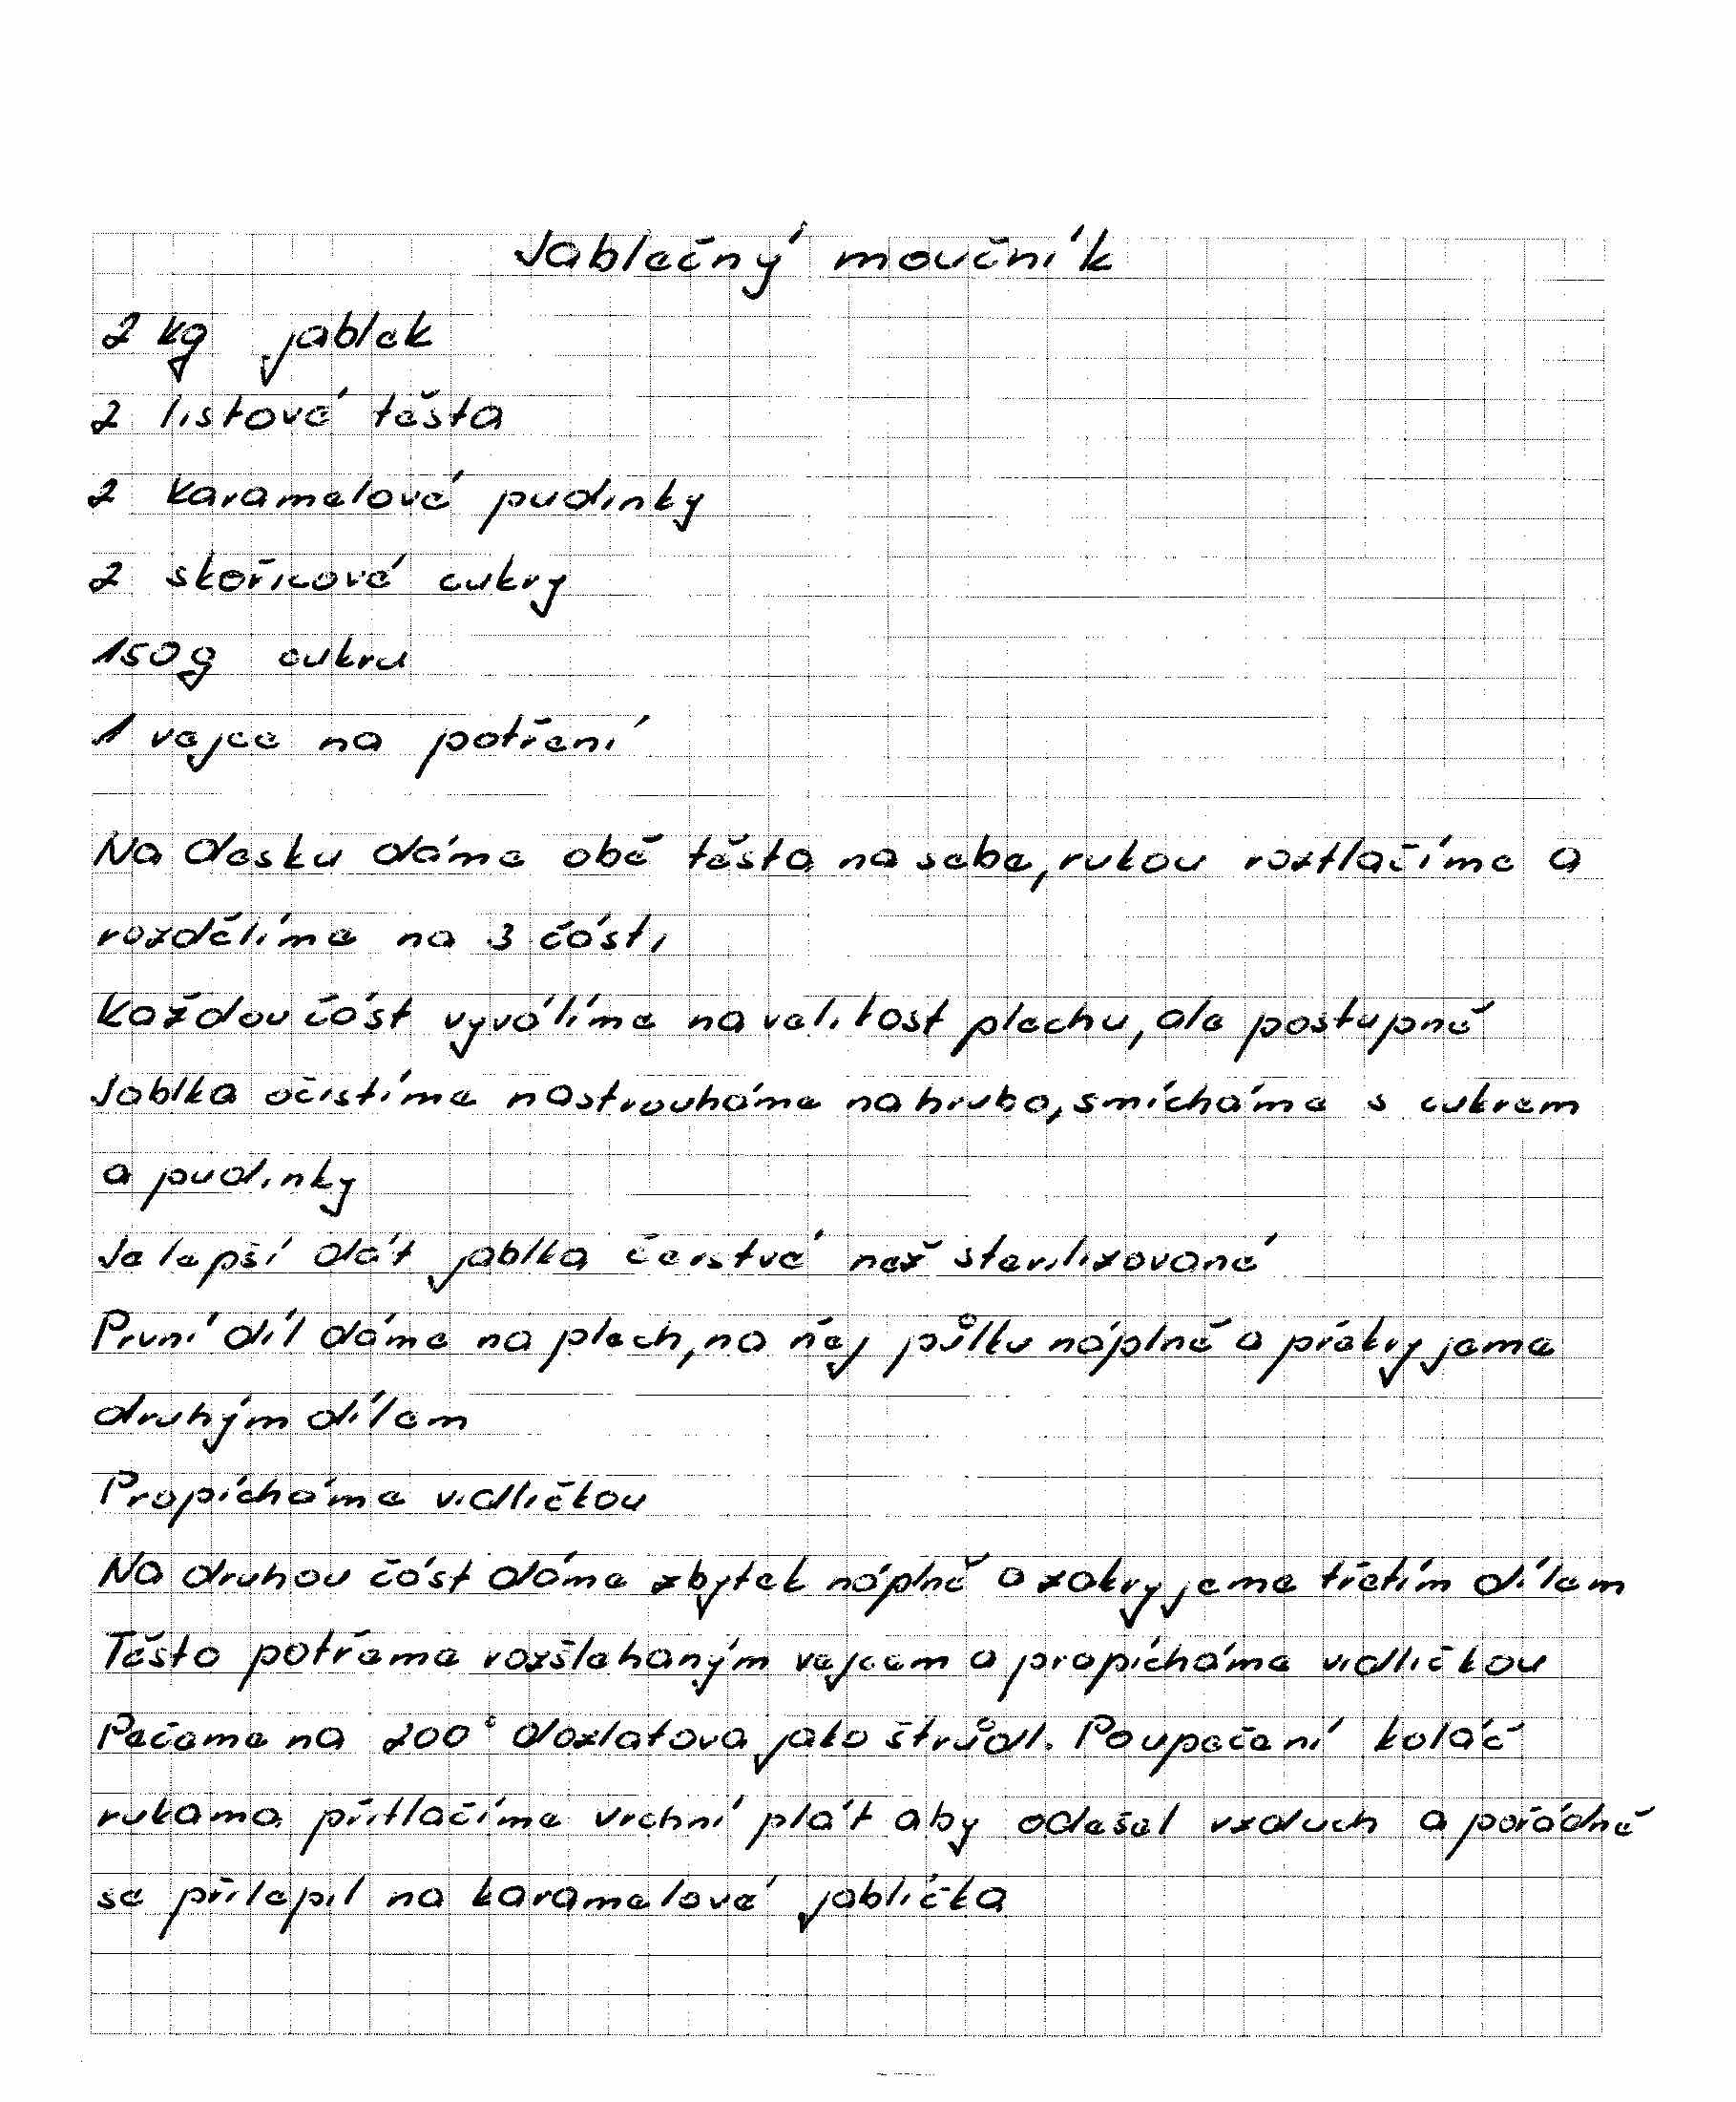 Jablečný moučník
2 kg jablek
2 listové těsta
2 karamelové pudinky
2 skořicové cukry
150g cukru
1 vejce na potření
Na desku dáme obě těsta na sebe, rukou roztlačíme a
rozdělíme na 3 části
Každou část vyválíme na velikost plechu, ale postupně
Jablka očistíme nastrouháme nahrubo, smícháme s cukrem
a pudinky
Je lepší dát jablka čerstvé než sterilizované
První díl dáme na plech, na něj půlku náplně a překryjeme
druhým dílem
Propícháme vidličkou
Na druhou část dáme zbytek náplně a zakryjeme třetím dílem
Těsto potřeme rozšlehaným vejcem a propícháme vidličkou
Pečeme na 200° dozlatova jako štrůdl. Po upečení koláč
rukama přitlačíme vrchní plát aby odešel vzduch a pořádně
se přilepil na karamelové jablíčka